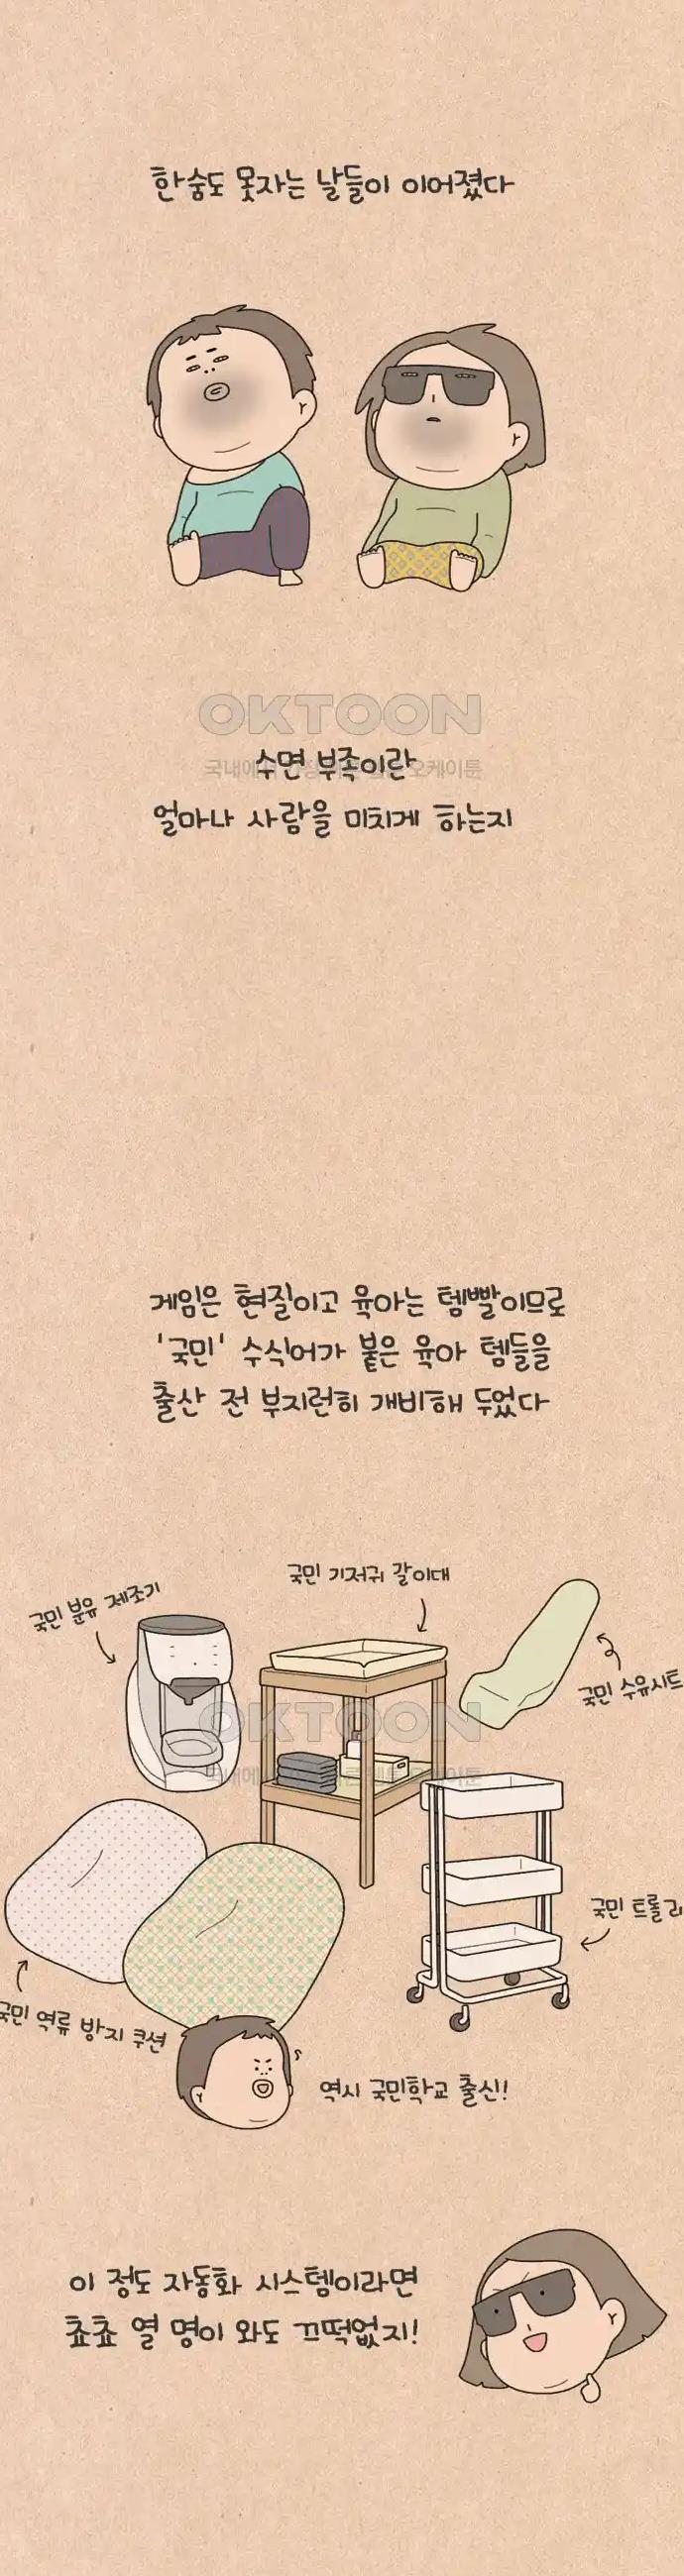 한숨도 못자는 날들이 이어졌다
OKTOON
수면 부족이란
얼마나 사람을 미치게 하는지
게임은 현질이고 육아는 템빨이므로
'국민' 수식어가 붙은 육아 템들을
출산 전 부지런히 개비해 두었다
국민 분유 제조기
국민 기저귀 갈이대
국민 수유시트
OKTOON
국민 트롤리
국민 역류 방지 쿠션
역시 국민학교 출신!
이 정도 자동화 시스템이라면
쵸쵸 열 명이 와도 끄떡없지!